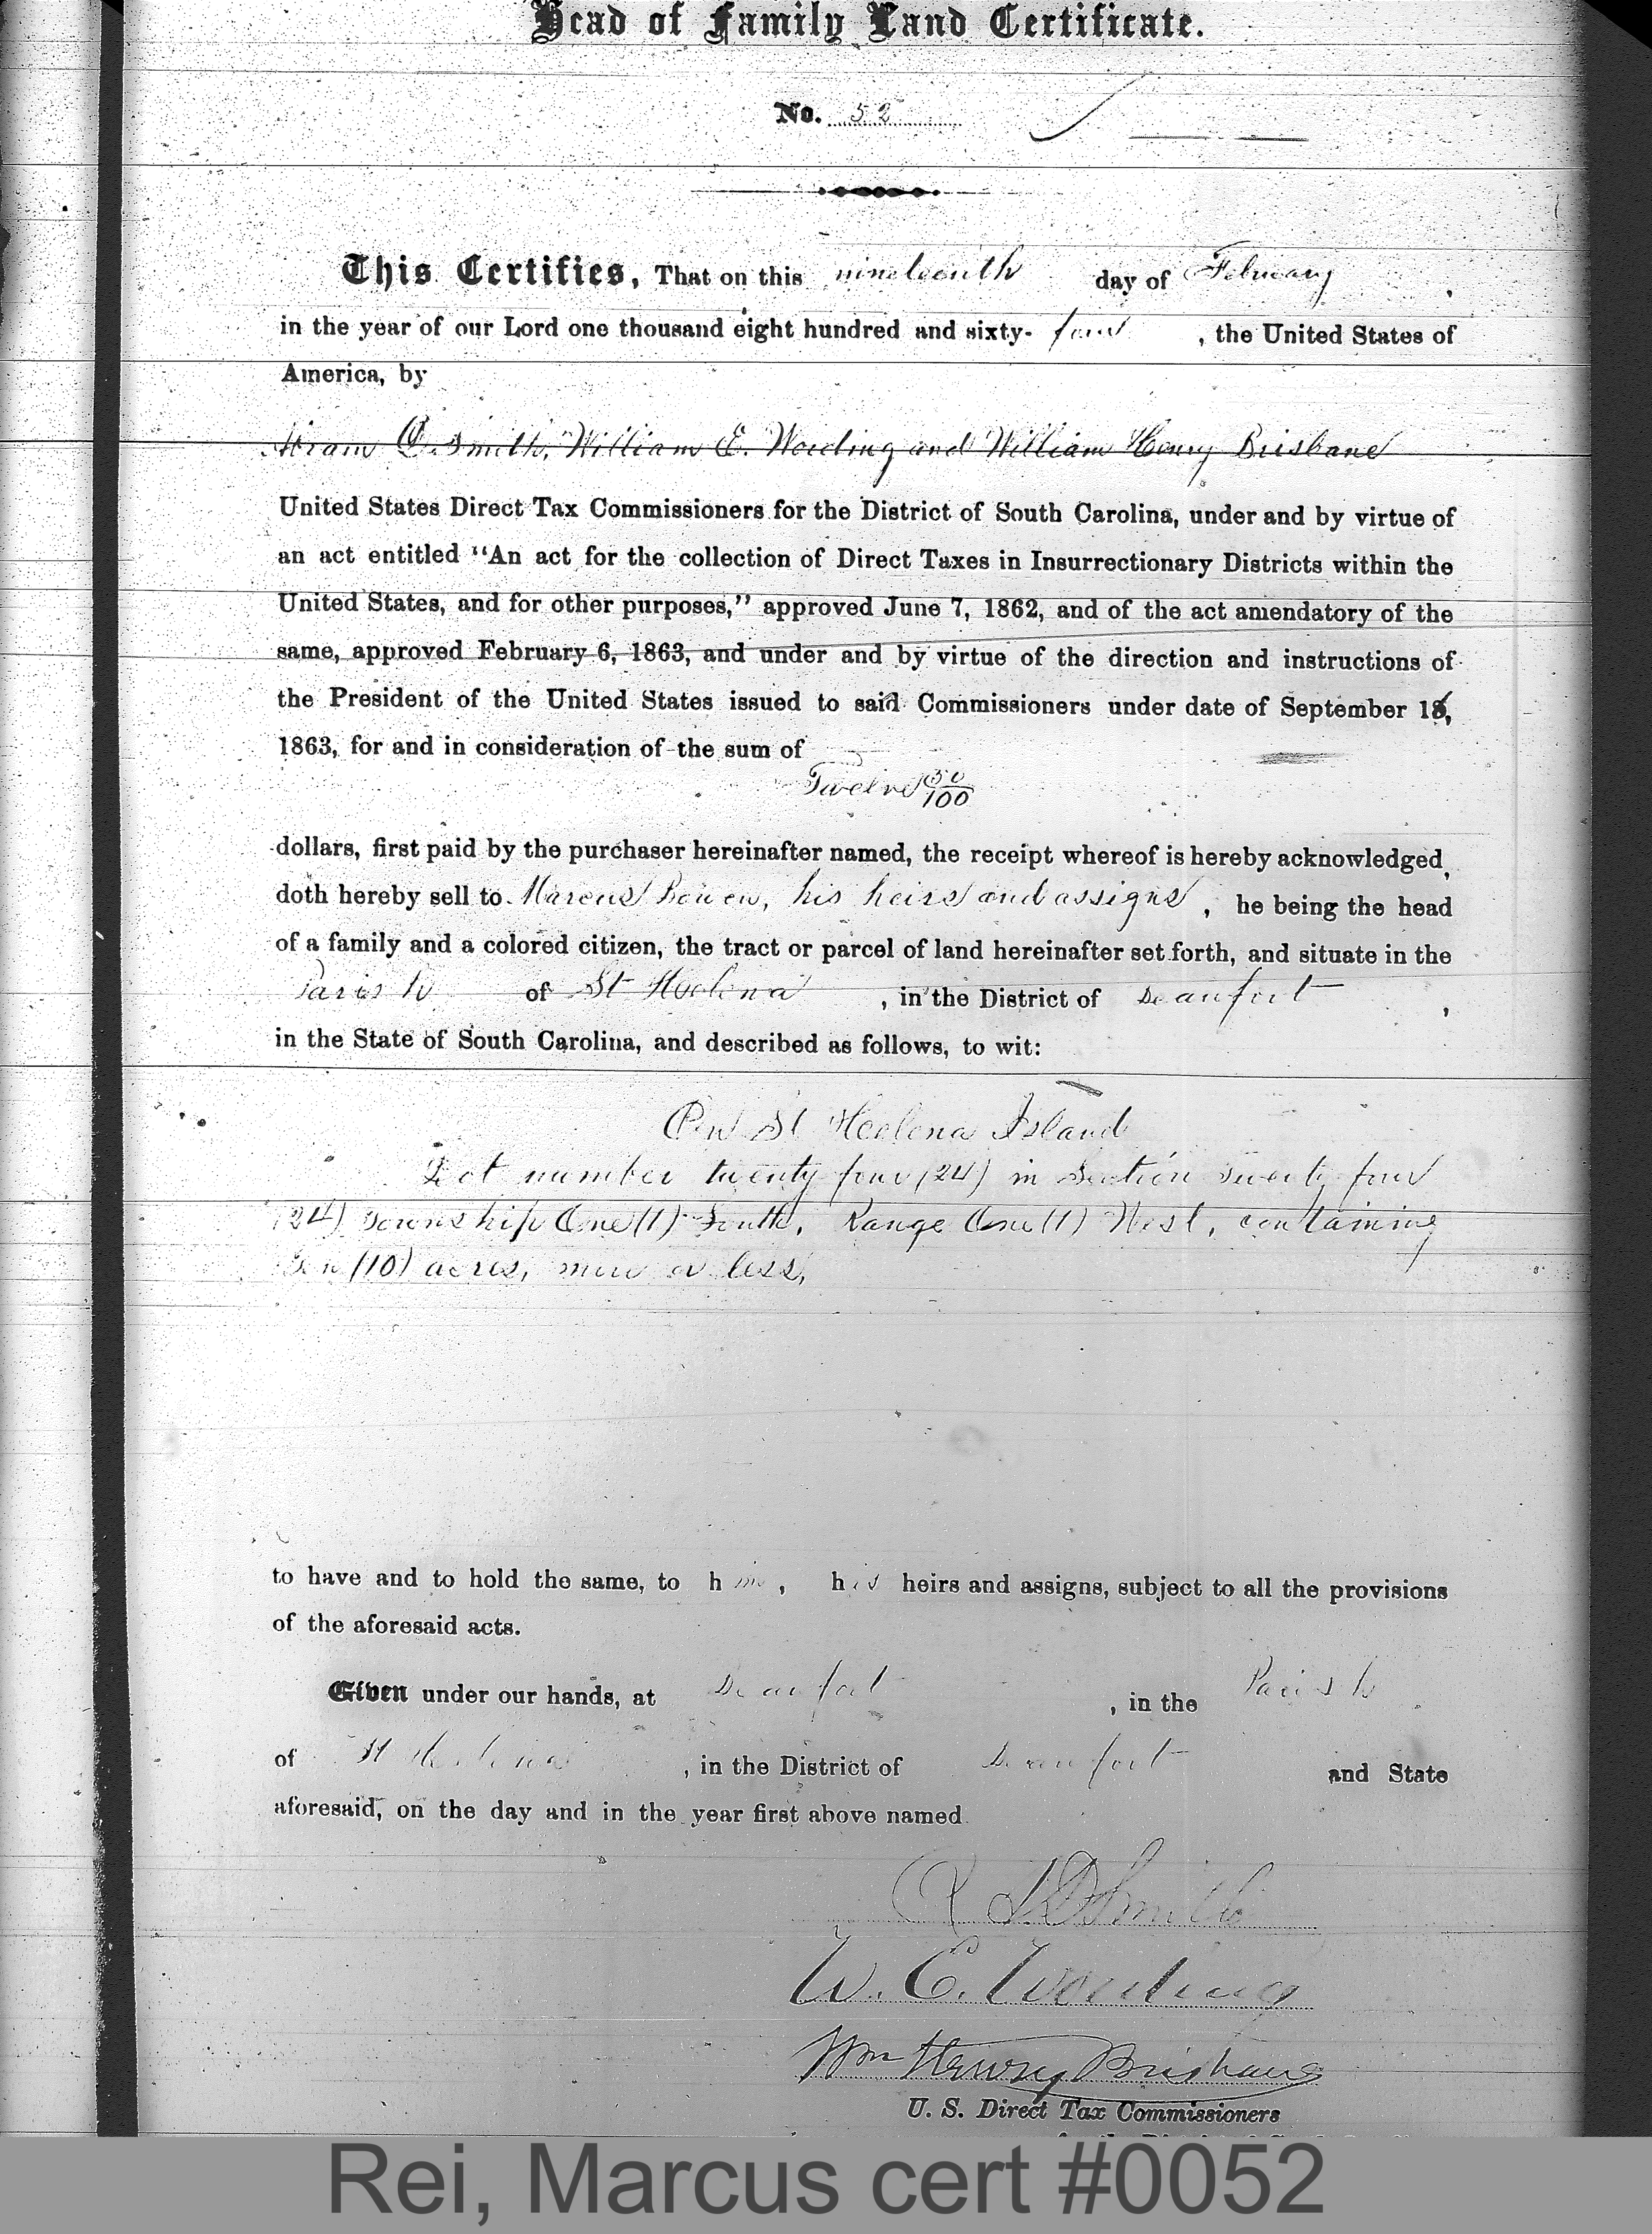 Head of Family Land Certificate.
No. 52
This Certifies, That on this nineteenth day of February,
in the year of our Lord one thousand eight hundred and sixty- four, the United States of
America, by
Hiram D. Smith, William E. Wording and William Henry Brisbane
United States Direct Tax Commissioners for the District of South Carolina, under and by virtue of
an act entitled "An act for the collection of Direct Taxes in Insurrectionary Districts within the
United States, and for other purposes," approved June 7, 1862, and of the act amendatory of the
same, approved February 6, 1863, and under and by virtue of the direction and instructions of
the President of the United States issued to said Commissioners under date of September
1863, for and in consideration of the sum of
Twelve 50/100
dollars, first paid by the purchaser hereinafter named, the receipt whereof is hereby acknowledged,
doth hereby sell to Marcus his heirs and assigns, he being the head
of a family and a colored citizen, the tract or parcel of land hereinafter set forth, and situate in the
Parish of St Heelena, in the District of Beaufort,
in the State of South Carolina, and described as follows, to wit:
On St Heelena Island
Lot number twenty four (24) in Section twenty four
(24) Township One (1) South, Range One (1) West, containing
Ten (10) acres, more or less,
to have and to hold the same, to him, his heirs and assigns, subject to all the provisions
of the aforesaid acts.
Given under our hands, at Beaufort, in the Parish
of St Heelena, in the District of Beaufort and State
aforesaid, on the day and in the year first above named.
Smith
W. E. Wording
Wm Henry Brisbane
U. S. Direct Tax Commissioners
Rei, Marcus cert #0052